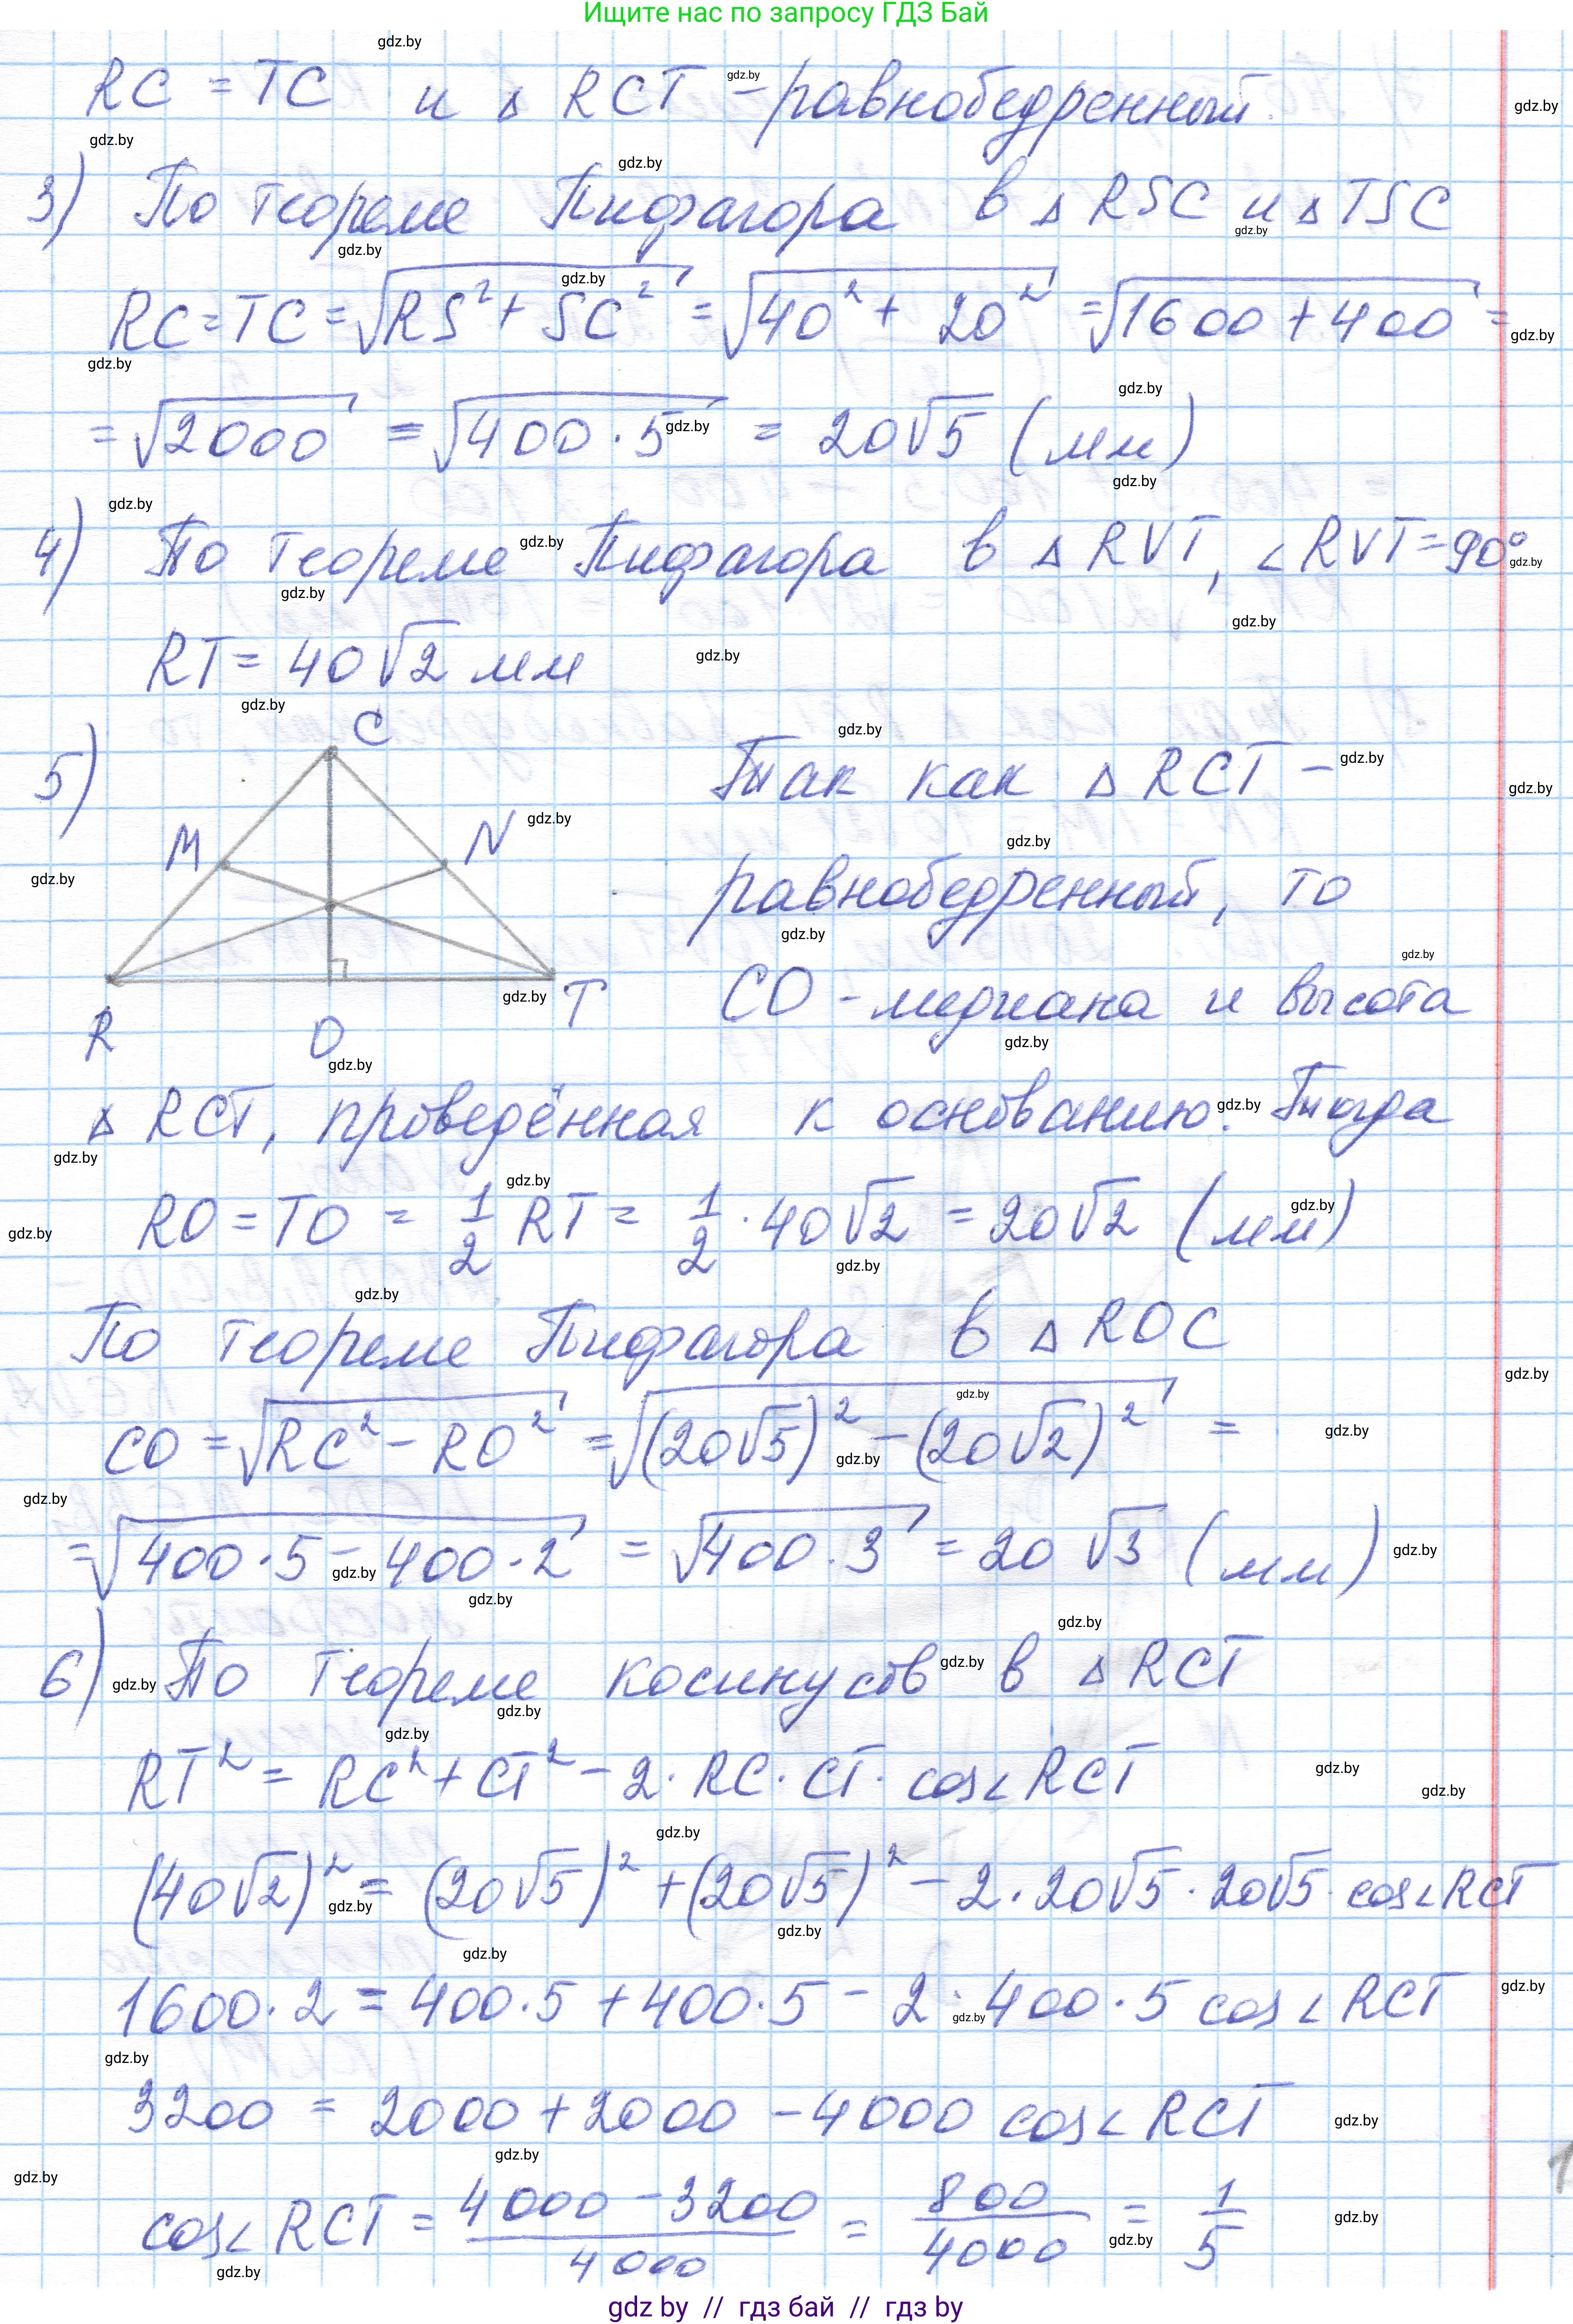 Ищите нас по запросу ГДЗ Бай
RC = TC и △ RCT – равнобедренный.
3) По теореме Пифагора в △ RSC и △ TSC
RC = TC = √(RS² + SC²) = √(40² + 20²) = √(1600 + 400) =
= √2000 = √(400 · 5) = 20√5 (мм)
4) По теореме Пифагора в △ RVT, ∠RVT = 90°
RT = 40√2 мм
5) C
M N
R O T
Так как △ RCT –
равнобедренный, то
CO - медиана и высота
△ RCT, проведённая к основанию. Тогда
RO = TO = 1/2 RT = 1/2 · 40√2 = 20√2 (мм)
По теореме Пифагора в △ ROC
CO = √(RC² – RO²) = √((20√5)² – (20√2)²) =
= √(400 · 5 – 400 · 2) = √(400 · 3) = 20√3 (мм)
6) По теореме косинусов в △ RCT
RT² = RC² + CT² – 2 · RC · CT · cos∠RCT
(40√2)² = (20√5)² + (20√5)² – 2 · 20√5 · 20√5 · cos∠RCT
1600 · 2 = 400 · 5 + 400 · 5 – 2 · 400 · 5 cos∠RCT
3200 = 2000 + 2000 – 4000 cos∠RCT
cos∠RCT = (4000 – 3200)/4000 = 800/4000 = 1/5
gdz by // гдз бай // gdz by